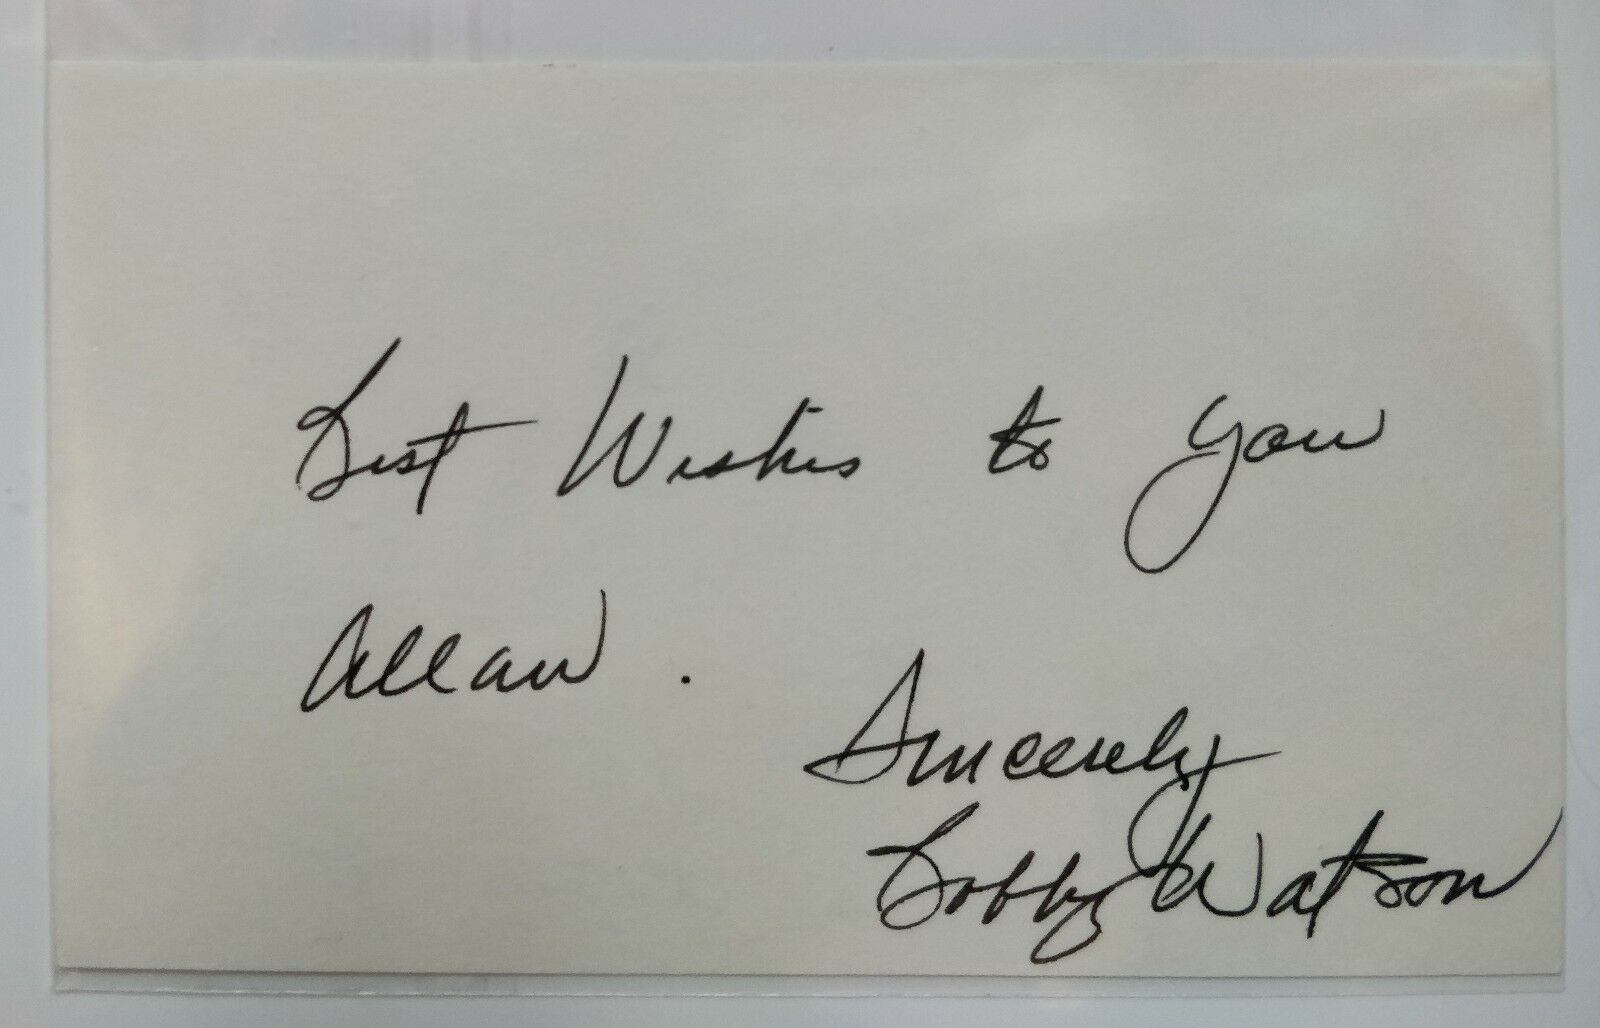 Best Wishes to you
Allan.
Sincerely
Bobby Watson